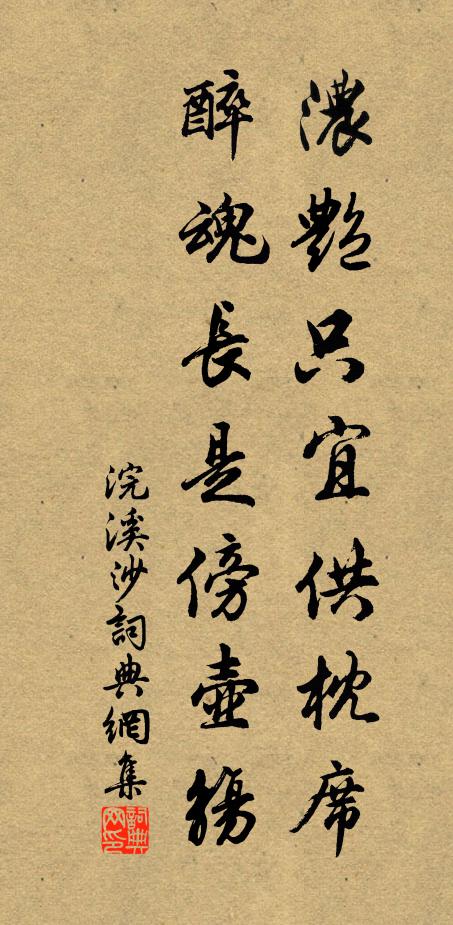 濃艷只宜供枕席
醉魂長是傍壺觴
浣溪沙詞典網集
詞典網印